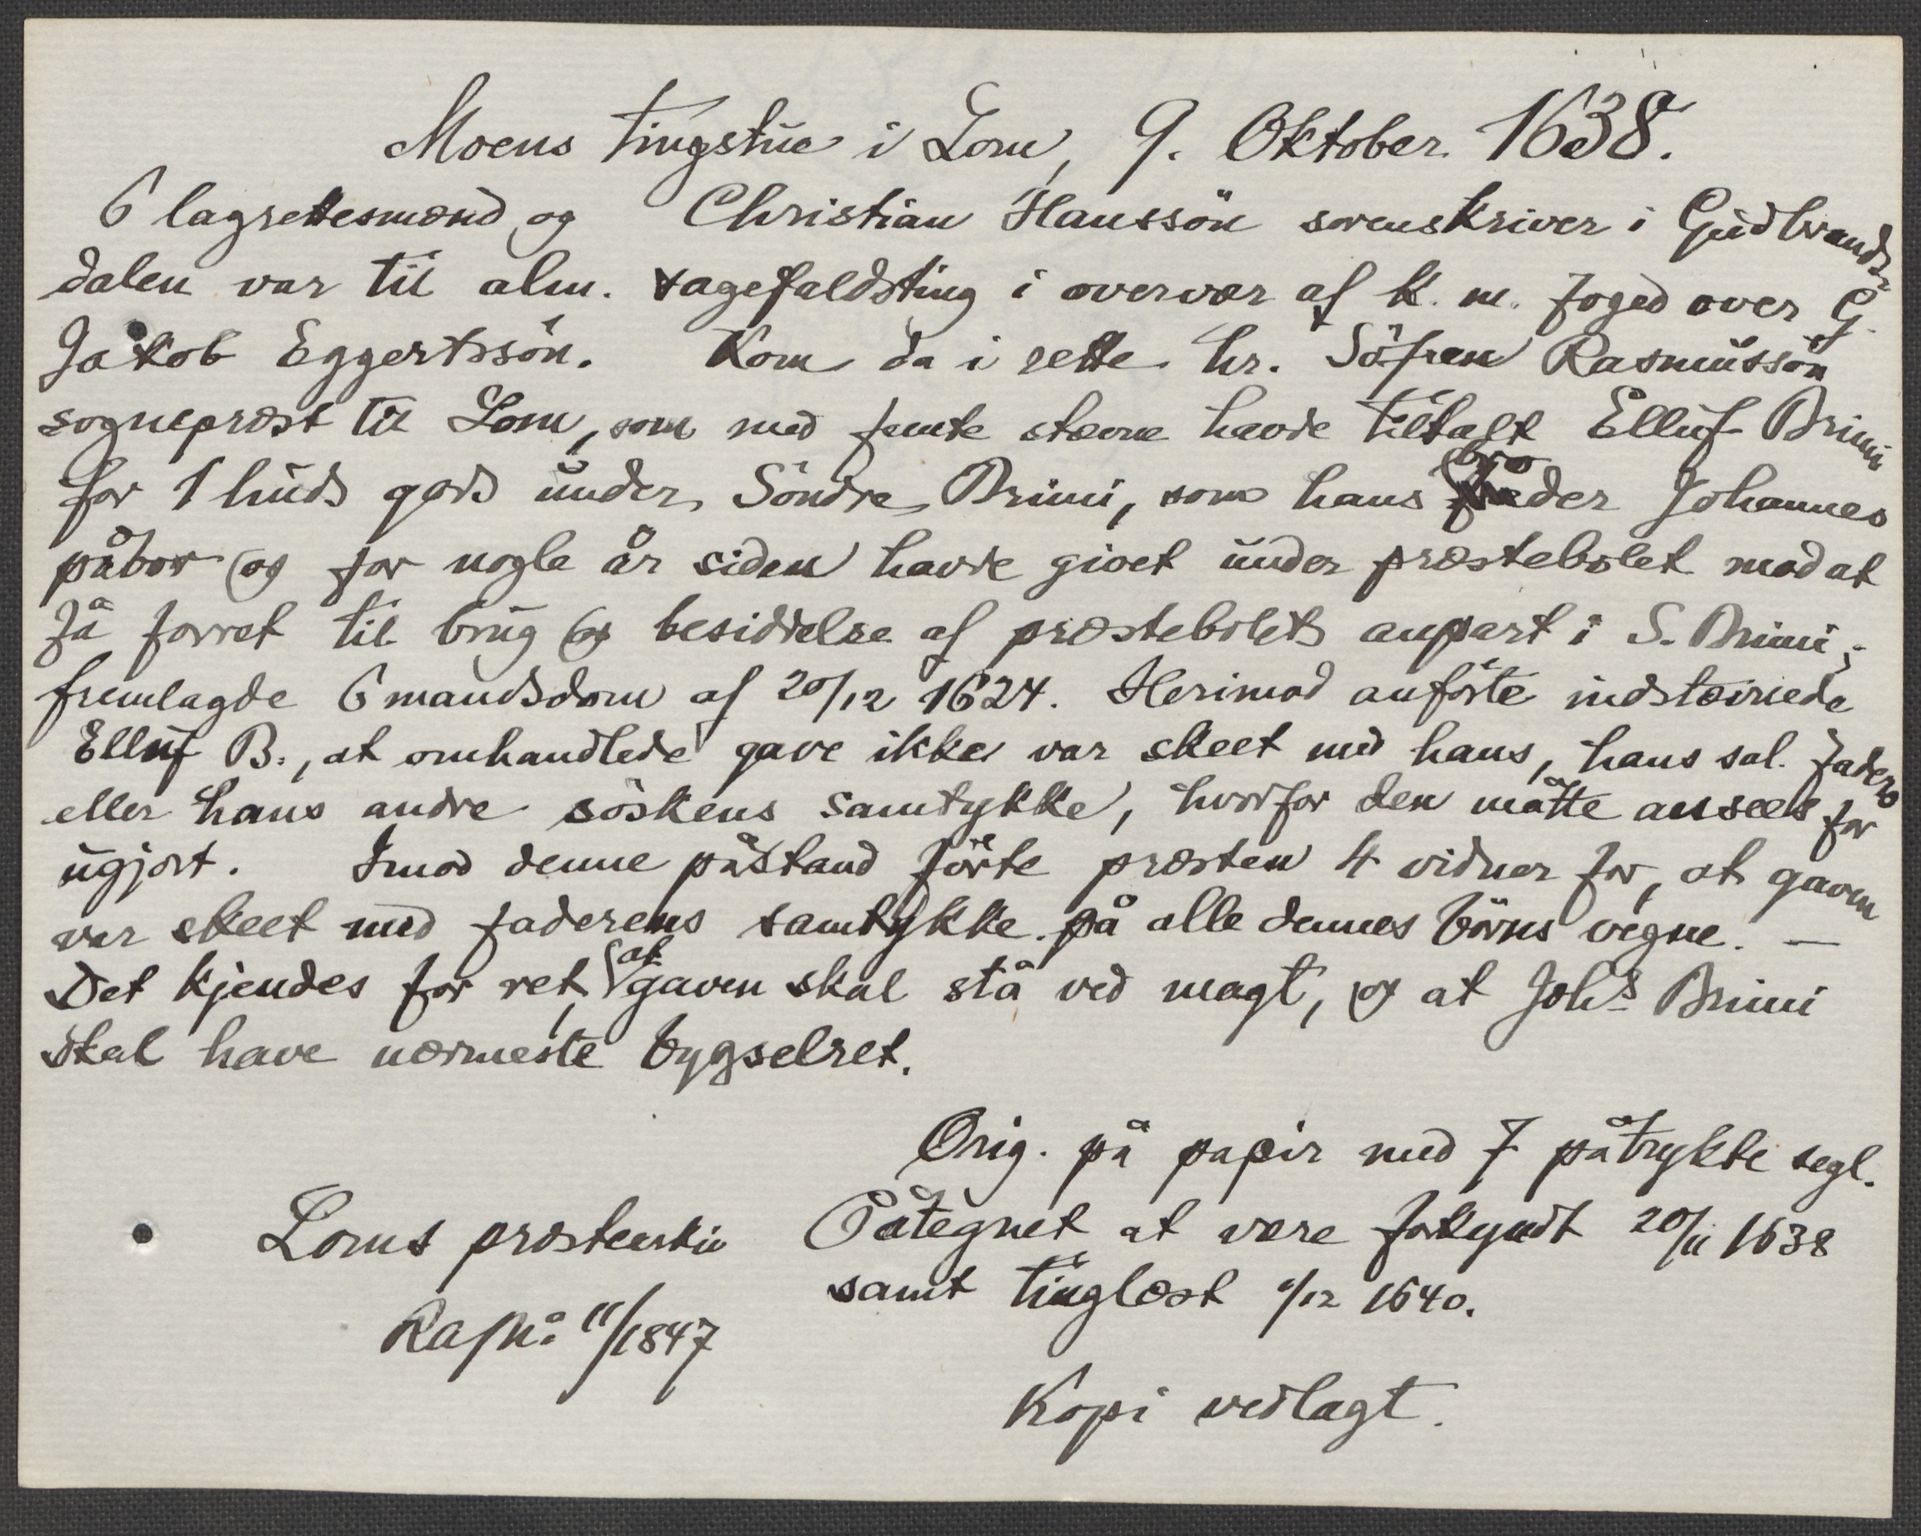 Moens tingstue i Lom, 9. Oktober 1638.
6 lagrettesmænd og Christian Hanssön sorenskriver i Gudbrands-
dalen var til alm. sagefaldsting i overvær af k. m. foged over G.
Jakob Eggertssön. Kom da i rette hr. Söfren Rasmussön
sognepræst til Lom, som med femte stævne havde tiltalt Elluf Brimi
for 1 huds gods under Söndre Brimi, som hans broder Johannes
påbor og for nogle år siden havde givet under præstebolet mod at
få forret til brug og besiddelse af præstebolets anpart i S. Brimi;
fremlagde 6 mandsdom af 20/12 1624. Herimod anförte indstævnede
Elluf B., at omhandlede gave ikke var skeet med hans, hans sal. faders
eller hans andre söskens samtykke, hvorfor den måtte ansees for
ugjort. Imod denne påstand förte præsten 4 vidner for, at gaven
var skeet med faderens samtykke på alle dennes börns vegne. —
Det kjendes for ret, at gaven skal stå ved magt, og at Johs Brimi
skal have nærmeste bygselret.
Orig. på papir med 7 påtrykte segl.
Loms præstearkiv Påtegnet at være forkyndt 20/11 1638
samt tinglæst 1/12 1640.
11/1847
Kopi vedlagt.